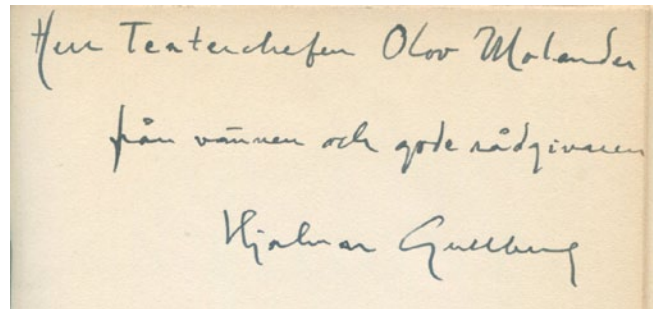 Herr Teaterchefen Olov Molander
från vännen och gode rådgivaren
Hjalmar Gullberg